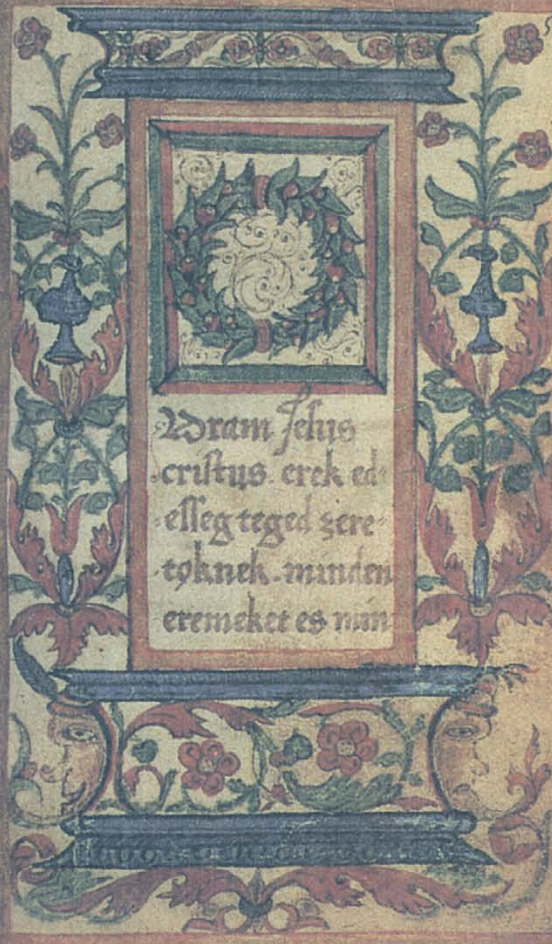 O
Wram Jesus
cristus. erek ed-
esseg teged zere-
tøknek. minden
eremeket es min